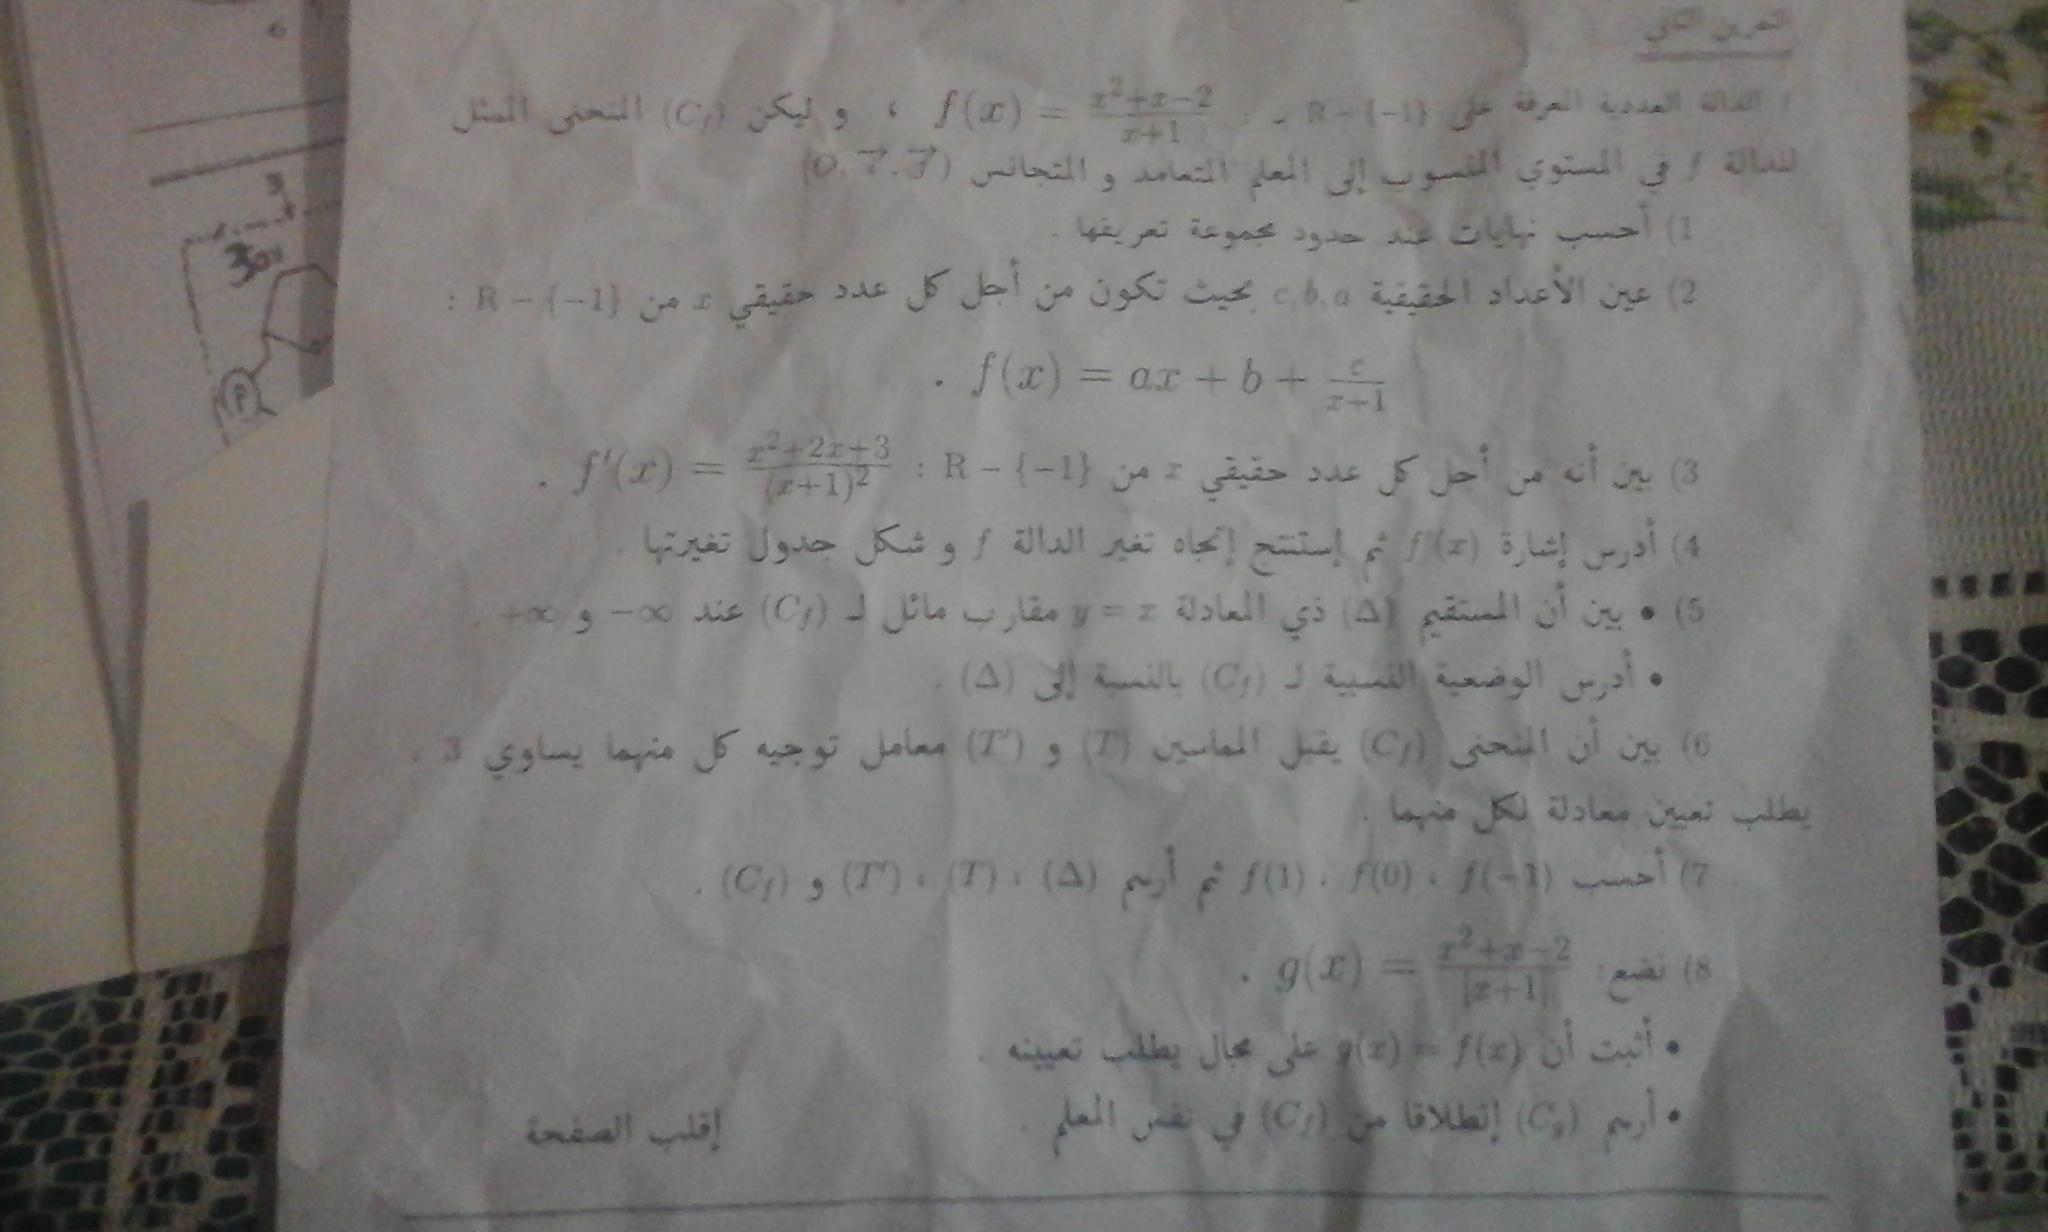 التمرين الثاني
f الدالة العددية المعرفة على R − {−1} بـ : f(x) = \frac{x^2+x-2}{x+1} ، و ليكن (C_f) المنحنى الممثل
للدالة f في المستوي المنسوب إلى المعلم المتعامد و المتجانس (O, \vec{i}, \vec{j})
1) أحسب نهايات عند حدود مجموعة تعريفها .
2) عين الأعداد الحقيقية c, b, a بحيث تكون من أجل كل عدد حقيقي x من R − {−1} :
f(x) = ax + b + \frac{c}{x+1} .
3) بين أنه من أجل كل عدد حقيقي x من R − {−1} : f'(x) = \frac{x^2+2x+3}{(x+1)^2} .
4) أدرس إشارة f'(x) ثم إستنتج إتجاه تغير الدالة f و شكل جدول تغيرتها .
5) • بين أن المستقيم (Δ) ذي المعادلة y = x مقارب مائل لـ (C_f) عند −∞ و +∞ .
• أدرس الوضعية النسبية لـ (C_f) بالنسبة إلى (Δ) .
6) بين أن المنحنى (C_f) يقبل المماسين (T) و (T') معامل توجيه كل منهما يساوي 3 .
يطلب تعيين معادلة لكل منهما .
7) أحسب f(−1) ، f(0) ، f(1) ثم أرسم (Δ) ، (T) ، (T') و (C_f) .
8) نضع: g(x) = \frac{x^2+x-2}{|x+1|} .
• أثبت أن g(x) = f(x) على مجال يطلب تعيينه .
• أرسم (C_g) إنطلاقا من (C_f) في نفس المعلم .
إقلب الصفحة
3
P